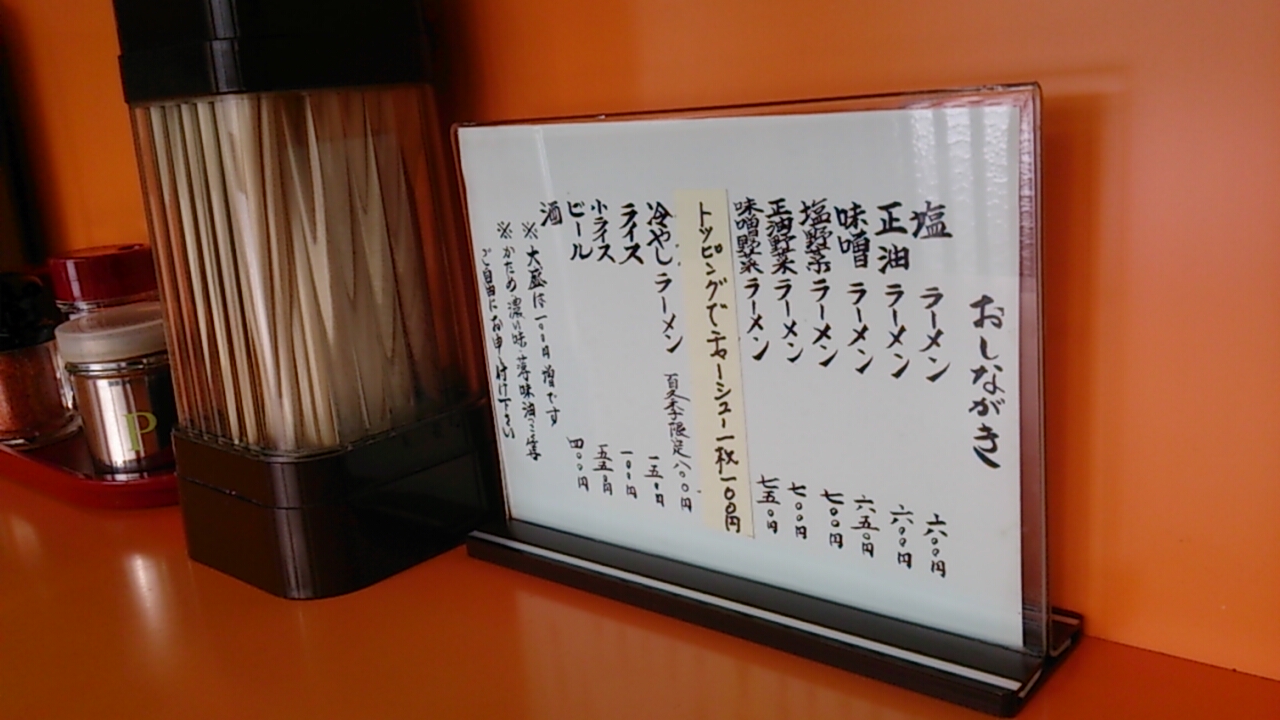 おしながき
塩ラーメン 六〇〇円
正油ラーメン 六〇〇円
味噌ラーメン 六五〇円
塩野菜ラーメン 七〇〇円
正油野菜ラーメン 七〇〇円
味噌野菜ラーメン 七五〇円
トッピングでチャーシュー一枚一〇〇円
冷やしラーメン 夏季限定八〇〇円
ライス 一五〇円
小ライス 一〇〇円
ビール 五五〇円
酒 四〇〇円
※大盛は一〇〇円増です
※かため、濃い味、薄味 等
ご自由にお申し付け下さい
P